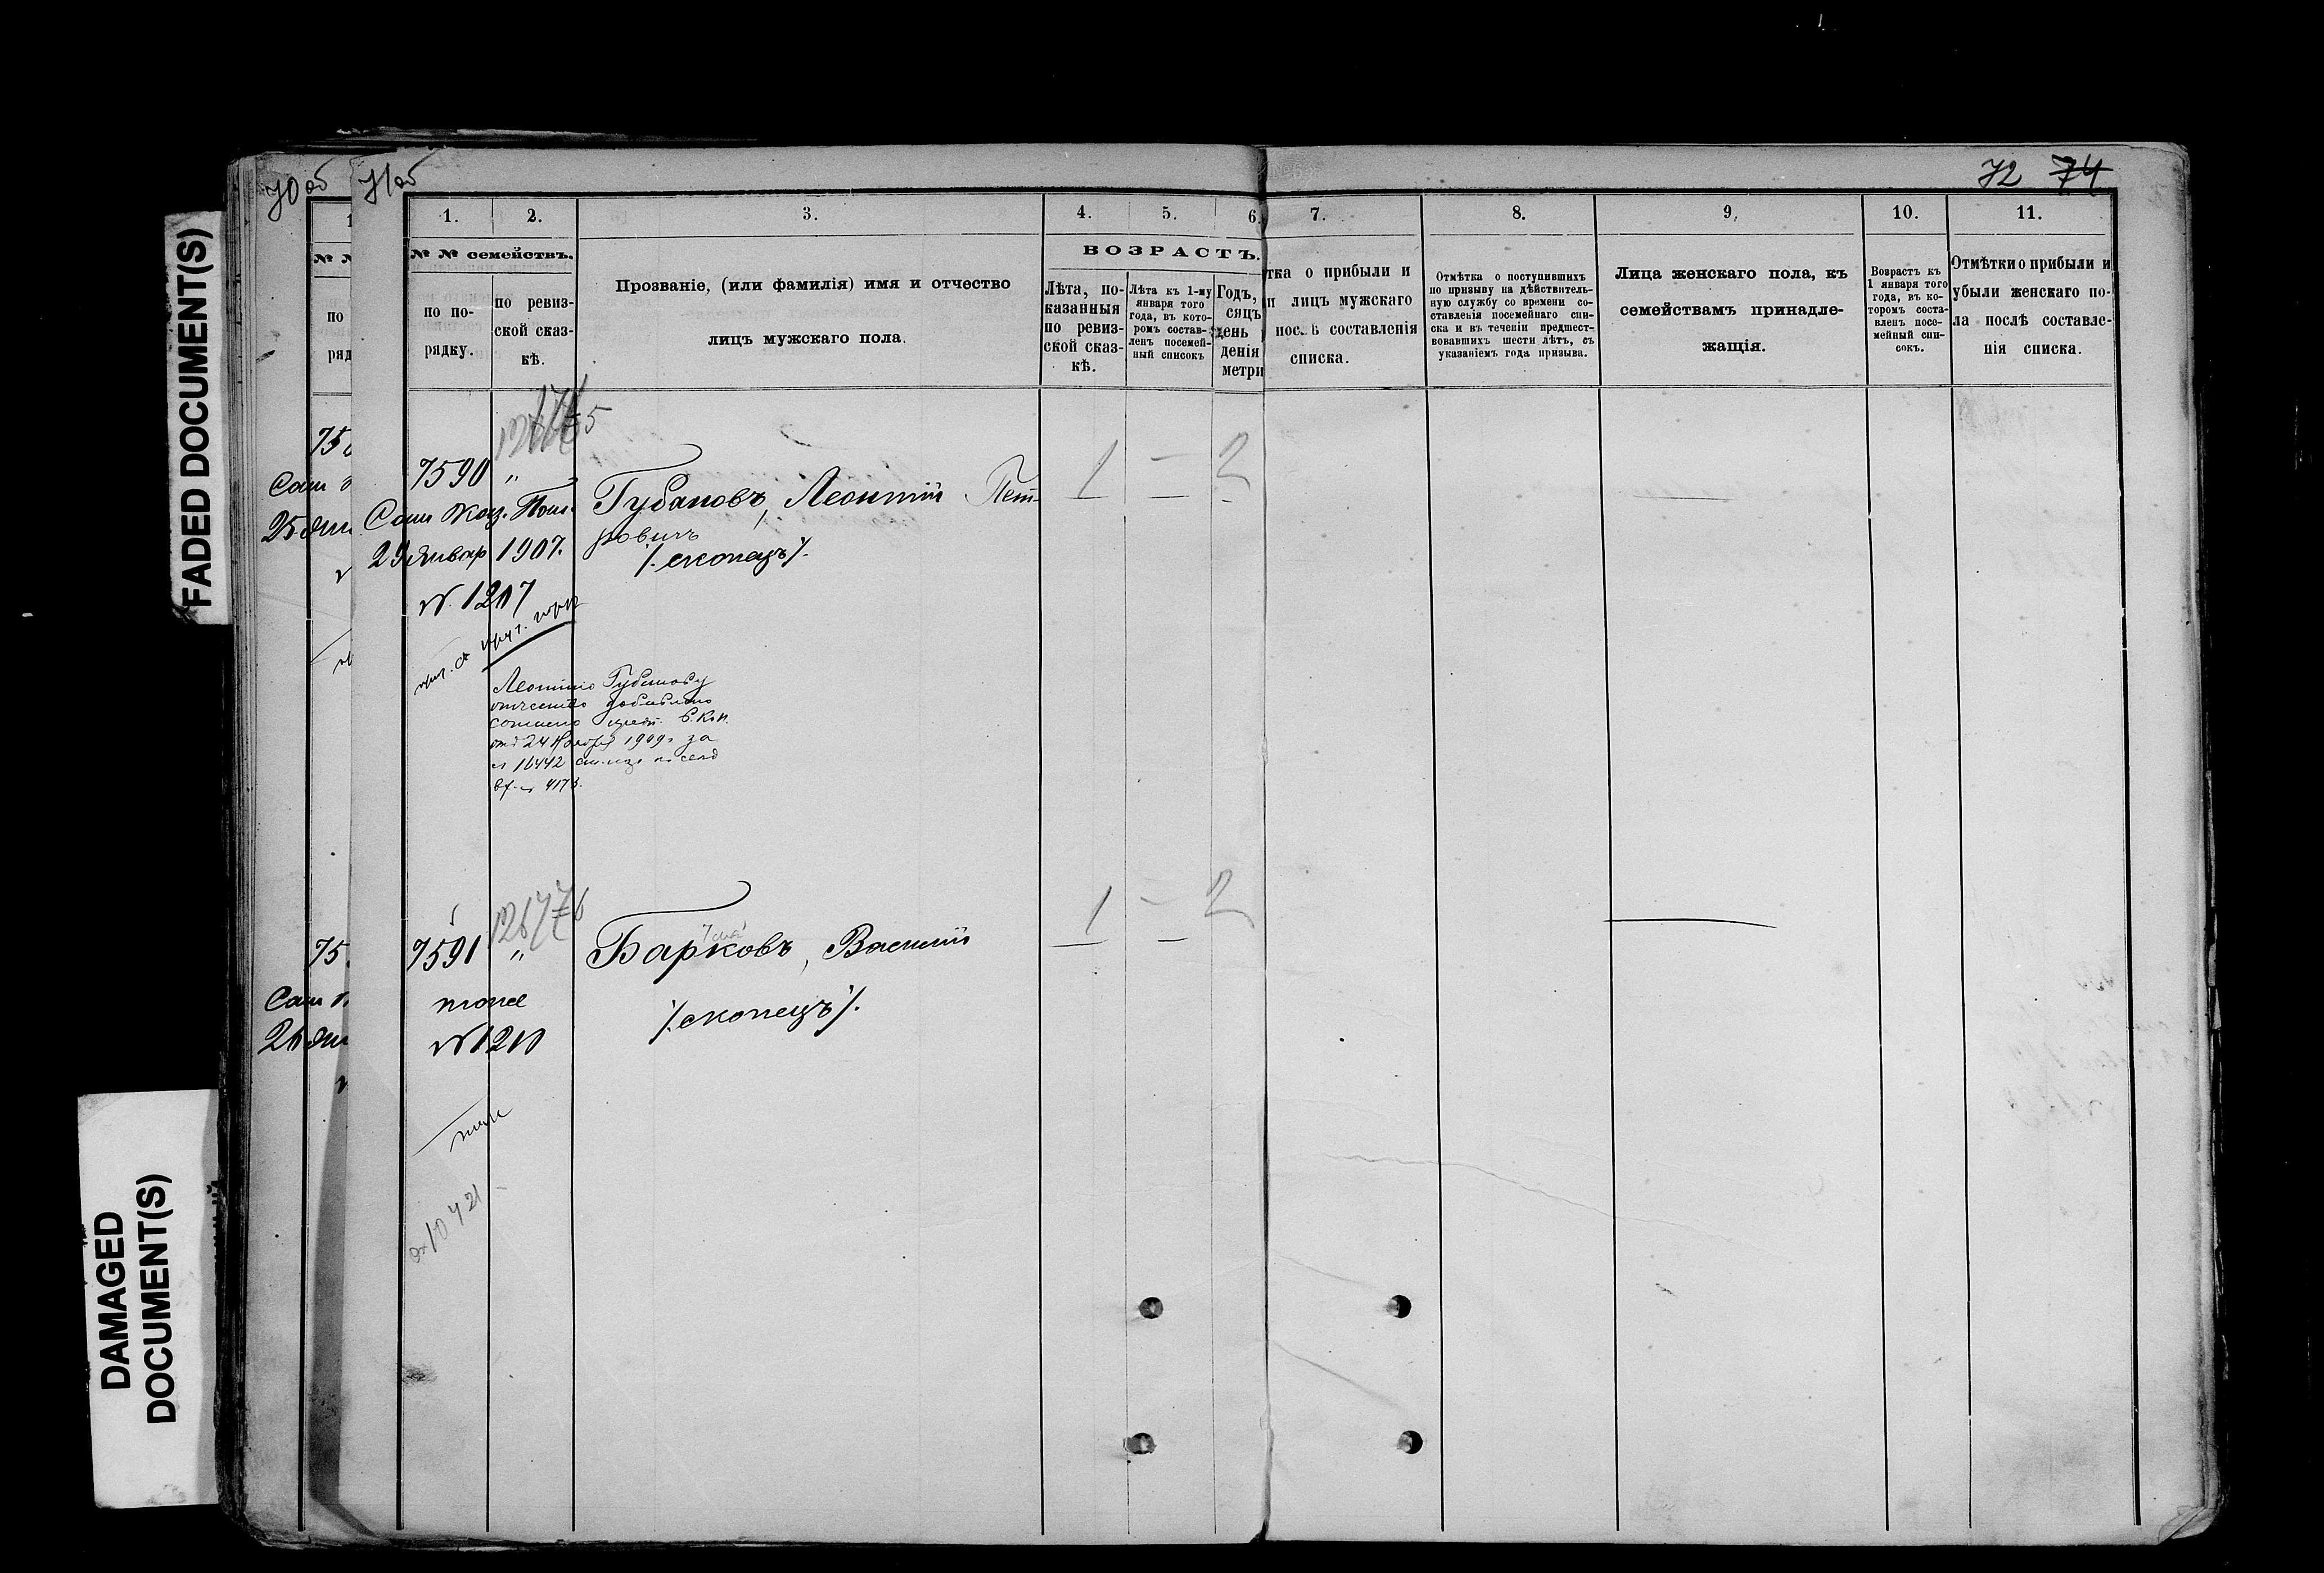 FADED DOCUMENT(S)
DAMAGED
DOCUMENT(S)
70 об
71 об
72 74
1. 2. 3. 4. 5. 6. 7. 8. 9. 10. 11.
№ № семействъ.
по по-
рядку.
по ревиз-
ской сказ-
кѣ.
Прозваніе, (или фамилія) имя и отчество
лицъ мужскаго пола.
ВОЗРАСТЪ.
Лѣта, по-
казанныя
по ревиз-
ской сказ-
кѣ.
Лѣта къ 1-му
января того
года, въ кото-
ромъ состав-
ленъ посемей-
ный списокъ
Годъ,
сяцъ
день
денія
метри
тка о прибыли и
и лицъ мужскаго
посл ѣ составленія
списка.
Отмѣтка о поступившихъ
по призыву на дѣйствитель-
ную службу со времени со-
ставленія посемейнаго спи-
ска и въ теченіи предшест-
вовавшихъ шести лѣтъ, съ
указаніемъ года призыва.
Лица женскаго пола, къ
семействамъ принадле-
жащія.
Возрастъ къ
1 января того
года, въ ко-
торомъ соста-
вленъ посе-
мейный спи-
сокъ.
Отмѣтки о прибыли и
убыли женскаго по-
ла послѣ составле-
нія списка.
7590 "
Губановъ, Леонтій Пет-
ровичъ
/. скопецъ /.
1 — 2
29 Январ 1907.
N. 1217
Леонтію Губанову
отчество добавлено
согласно
отъ 24 Ноября 1909 г за
N 16442
7591 "
Барковъ, Василій
/. скопецъ /.
1 — 2
тоже
N 1210
10421